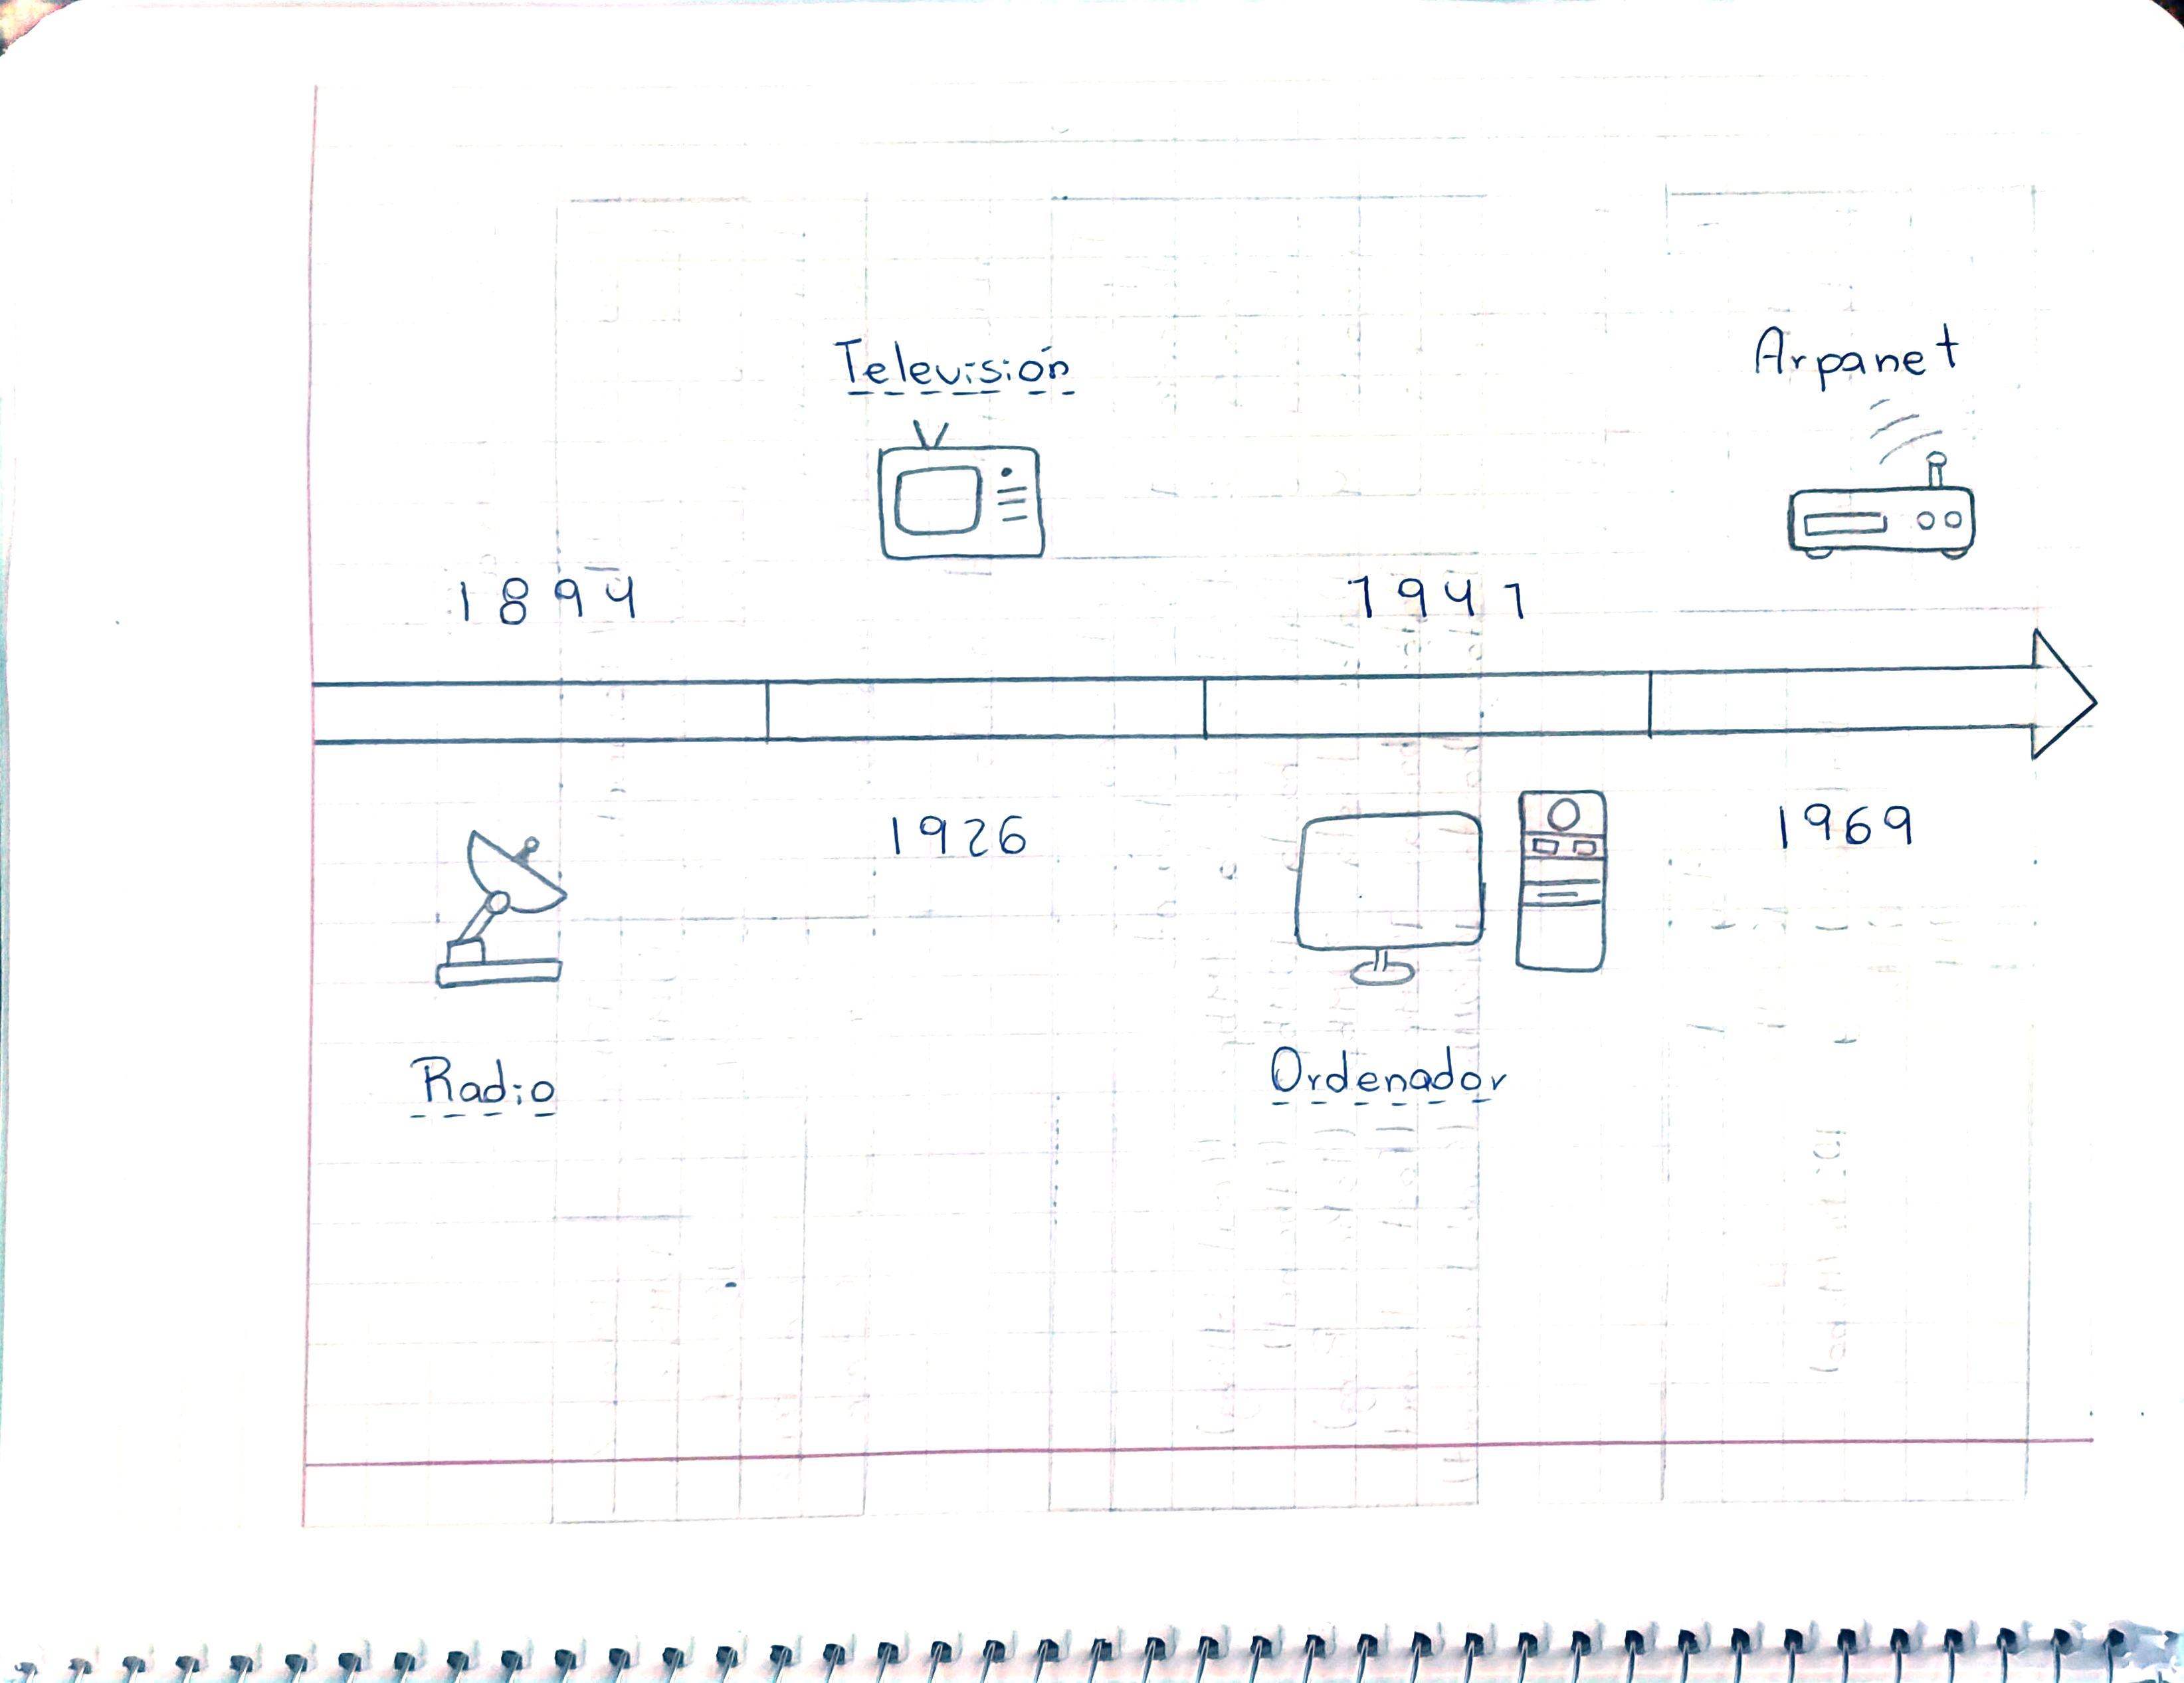 1894
Radio
Televisión
1926
1941
Ordenador
Arpanet
1969